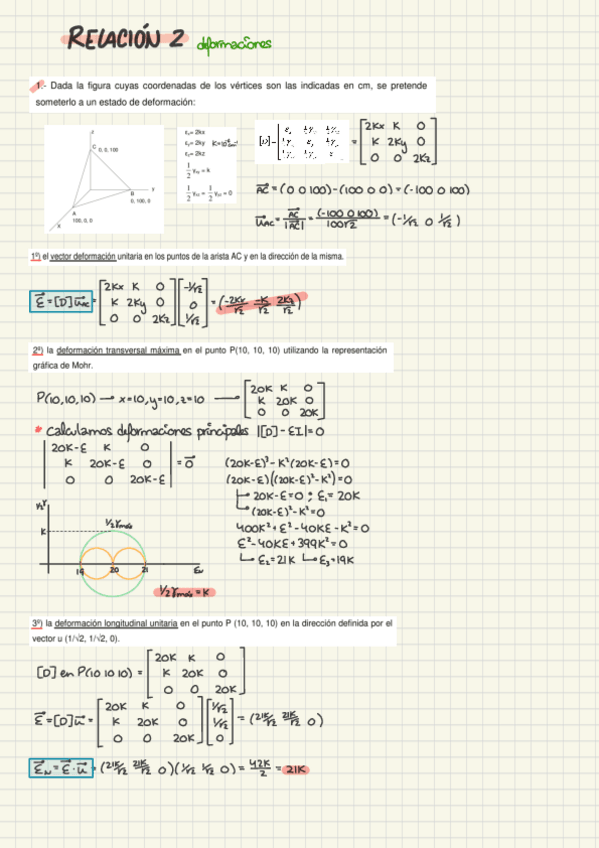 RELACIÓN 2 deformaciones
1.- Dada la figura cuyas coordenadas de los vértices son las indicadas en cm, se pretende
someterlo a un estado de deformación:
z
C 0, 0, 100
y
B
0, 100, 0
A
100, 0, 0
x
εx= 2kx
εy= 2ky
εz= 2kz
1/2 γxy = k
1/2 γxz = 1/2 γyz = 0
[D]= = [2Kx K 0
K 2Ky 0
0 0 2Kz]
AC = (0 0 100)-(100 0 0) = (-100 0 100)
uAC = AC/|AC| = (-100 0 100)/100√2 = (-1/√2 0 1/√2)
1º) el vector deformación unitaria en los puntos de la arista AC y en la dirección de la misma.
ε = [D] uAC = [2Kx K 0
K 2Ky 0
0 0 2Kz] [-1/√2
0
1/√2] = (-2Kx/√2 -K/√2 2Kz/√2)
2º) la deformación transversal máxima en el punto P(10, 10, 10) utilizando la representación
gráfica de Mohr.
P(10,10,10) → x=10, y=10, z=10 → [20K K 0
K 20K 0
0 0 20K]
* calculamos deformaciones principales |[D] - εI| = 0
|20K-ε K 0
K 20K-ε 0
0 0 20K-ε| = 0
(20K-ε)³ - K²(20K-ε) = 0
(20K-ε)((20K-ε)²-K²) = 0
20K-ε=0 ; ε1 = 20K
(20K-ε)²-K² = 0
400K²+ε²-40Kε-K² = 0
ε²-40Kε+399K² = 0
ε2=21K ε3=19K
1/2 γ
K
1/2 γmáx
19 20 21 εN
1/2 γmáx = K
3º) la deformación longitudinal unitaria en el punto P (10, 10, 10) en la dirección definida por el
vector u (1/√2, 1/√2, 0).
[D] en P(10 10 10) = [20K K 0
K 20K 0
0 0 20K]
ε = [D] u = [20K K 0
K 20K 0
0 0 20K] [1/√2
1/√2
0] = (21K/√2 21K/√2 0)
εN = ε · u = (21K/√2 21K/√2 0)(1/√2 1/√2 0) = 42K/2 = 21K